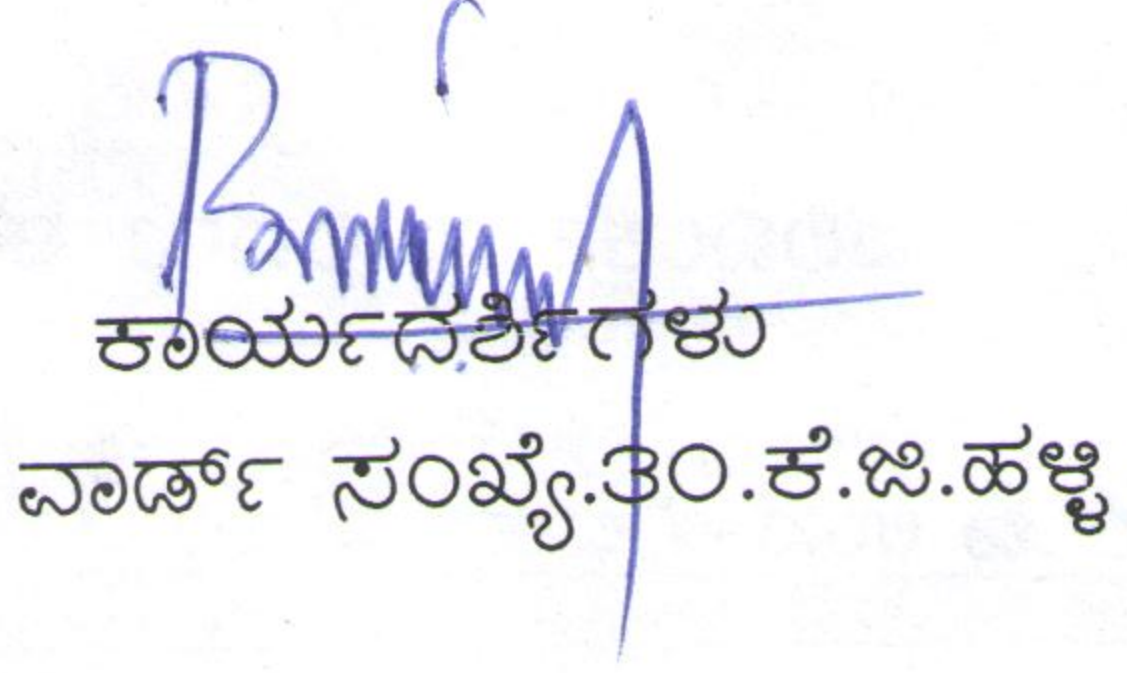 ಕಾರ್ಯದರ್ಶಿಗಳು
ವಾರ್ಡ್ ಸಂಖ್ಯೆ.೩೦.ಕೆ.ಜಿ.ಹಳ್ಳಿ